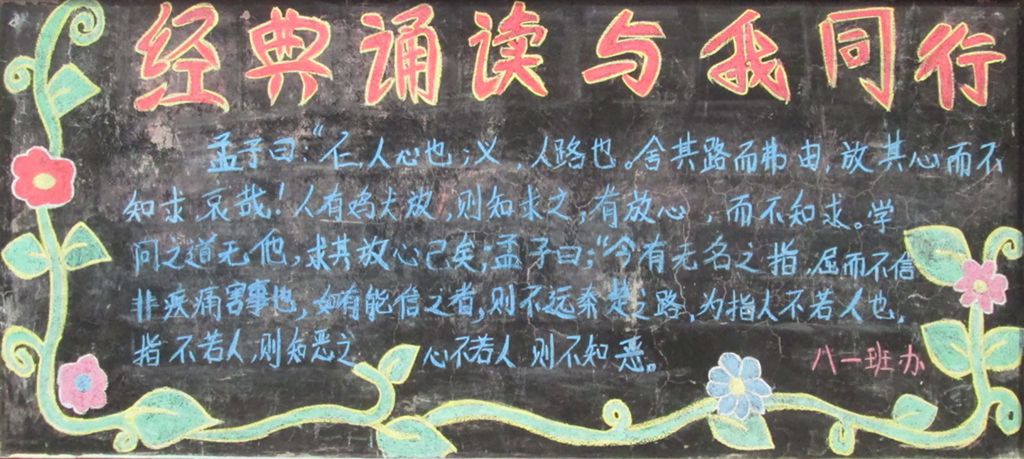 经典诵读与我同行
孟子曰："仁,人心也;义,人路也。舍其路而弗由,放其心而不
知求,哀哉!人有鸡犬放,则知求之,有放心,而不知求。学
问之道无他,求其放心已矣;孟子曰;"今有无名之指,屈而不信
非疾痛害事也,如有能信之者,则不远秦楚之路,为指人不若人也,
指不若人,则知恶之 心不若人 则不知恶。
八一班办